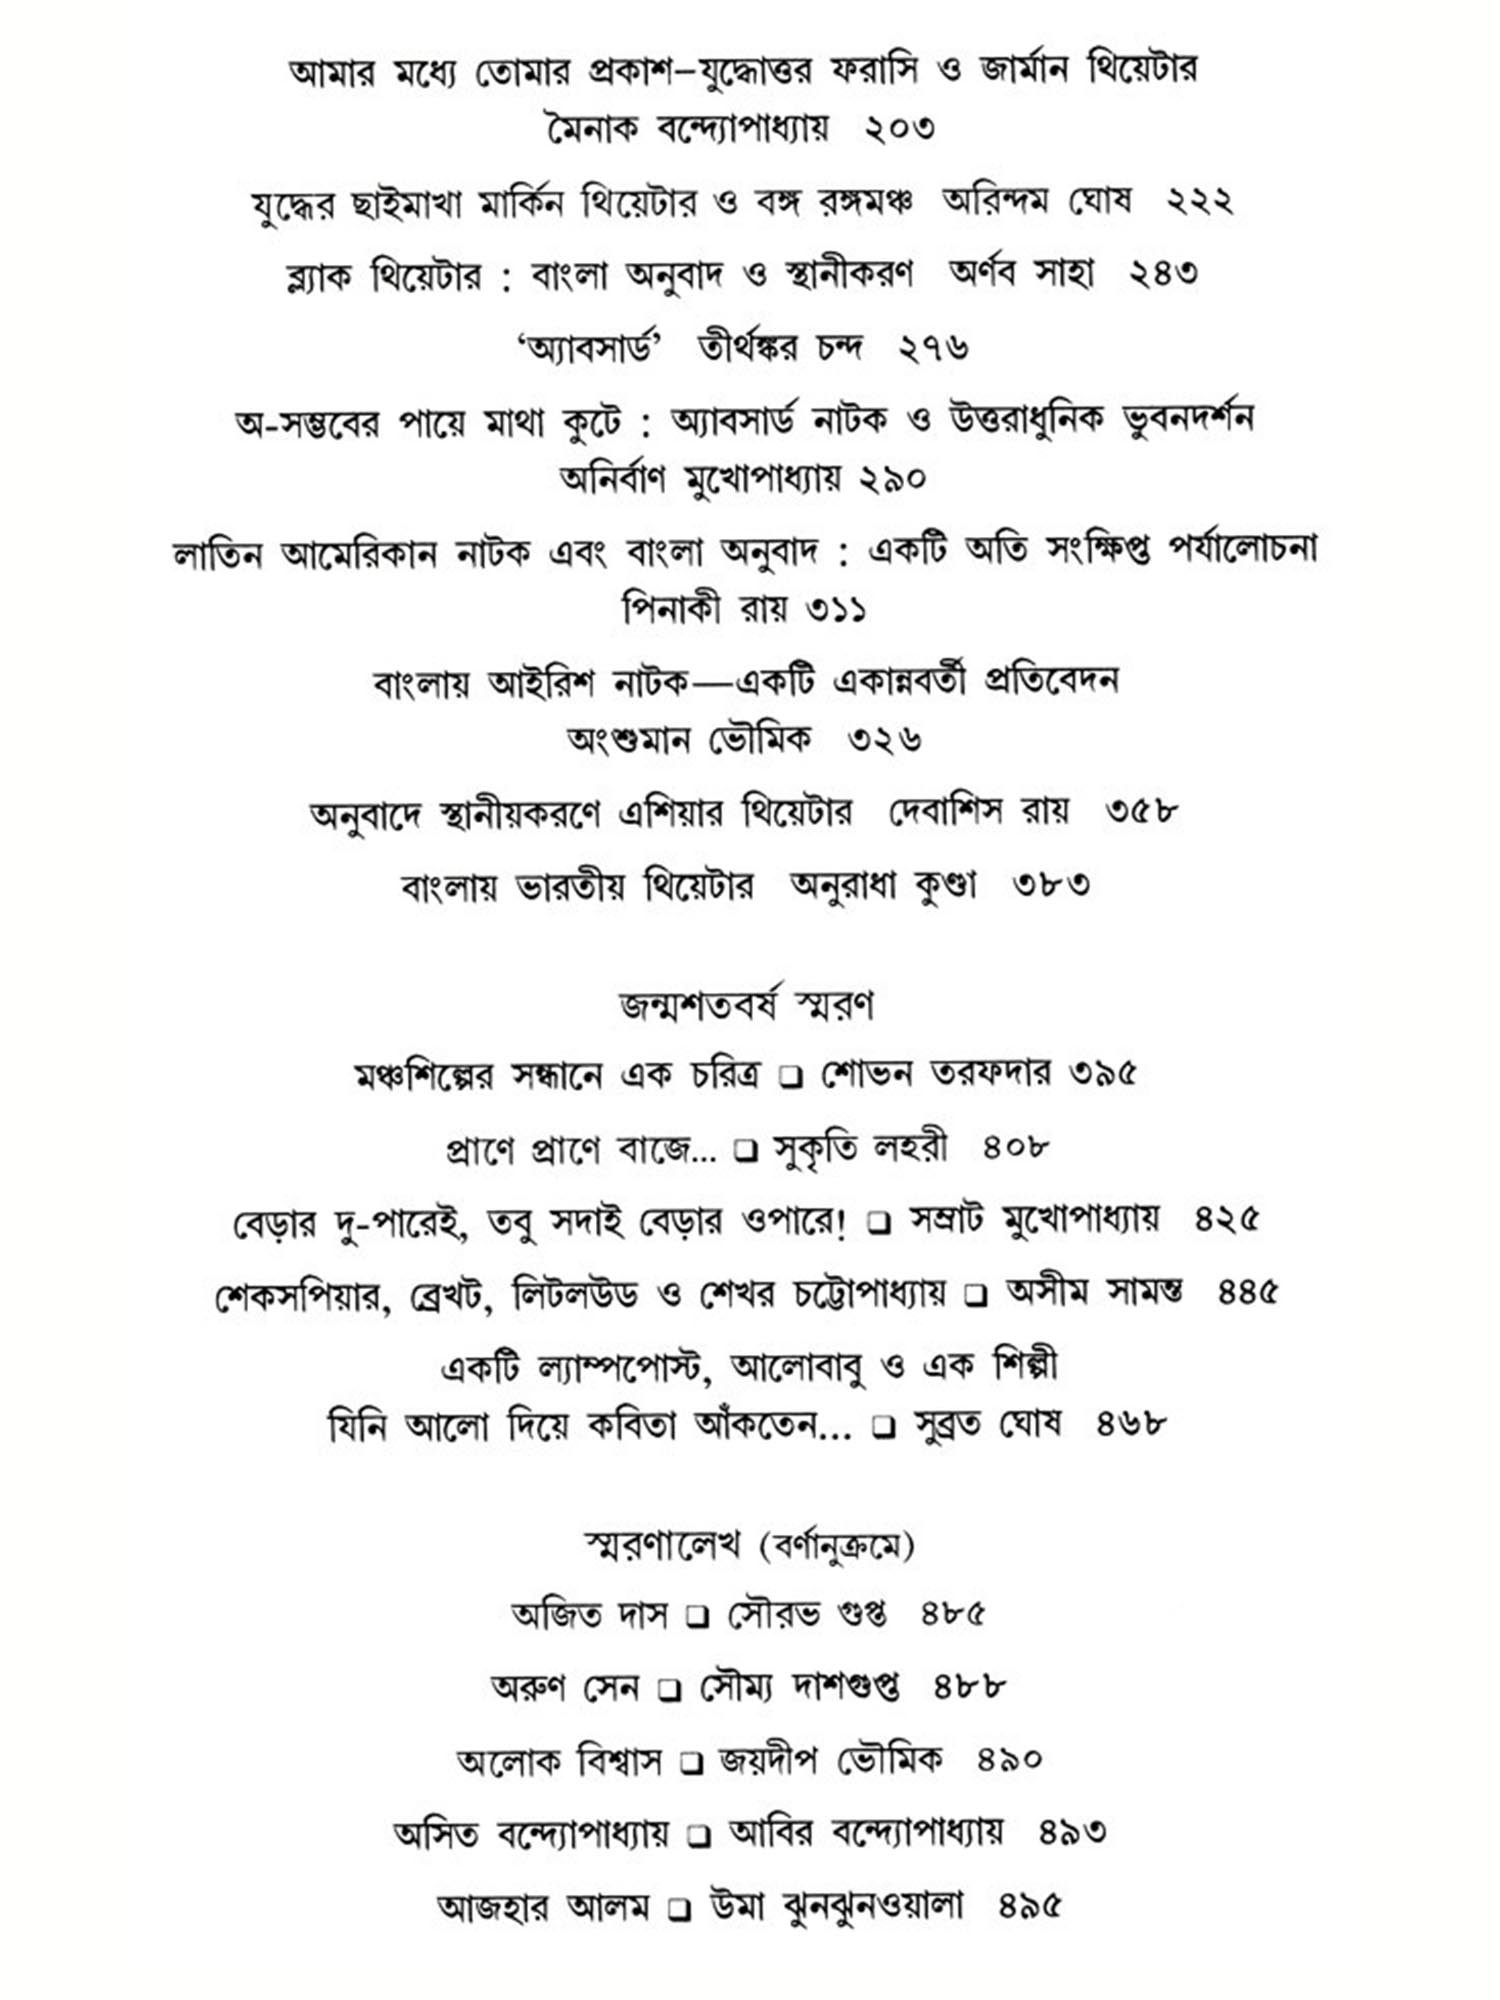 আমার মধ্যে তোমার প্রকাশ–যুদ্ধোত্তর ফরাসি ও জার্মান থিয়েটার
মৈনাক বন্দ্যোপাধ্যায় ২০৩
যুদ্ধের ছাইমাখা মার্কিন থিয়েটার ও বঙ্গ রঙ্গমঞ্চ অরিন্দম ঘোষ ২২২
ব্ল্যাক থিয়েটার : বাংলা অনুবাদ ও স্থানীকরণ অর্ণব সাহা ২৪৩
‘অ্যাবসার্ড’ তীর্থঙ্কর চন্দ ২৭৬
অ-সম্ভবের পায়ে মাথা কুটে : অ্যাবসার্ড নাটক ও উত্তরাধুনিক ভুবনদর্শন
অনির্বাণ মুখোপাধ্যায় ২৯০
লাতিন আমেরিকান নাটক এবং বাংলা অনুবাদ : একটি অতি সংক্ষিপ্ত পর্যালোচনা
পিনাকী রায় ৩১১
বাংলায় আইরিশ নাটক—একটি একান্নবর্তী প্রতিবেদন
অংশুমান ভৌমিক ৩২৬
অনুবাদে স্থানীয়করণে এশিয়ার থিয়েটার দেবাশিস রায় ৩৫৮
বাংলায় ভারতীয় থিয়েটার অনুরাধা কুণ্ডা ৩৮৩
জন্মশতবর্ষ স্মরণ
মঞ্চশিল্পের সন্ধানে এক চরিত্র ❑ শোভন তরফদার ৩৯৫
প্রাণে প্রাণে বাজে... ❑ সুকৃতি লহরী ৪০৮
বেড়ার দু-পারেই, তবু সদাই বেড়ার ওপারে! ❑ সম্রাট মুখোপাধ্যায় ৪২৫
শেকসপিয়ার, ব্রেখট, লিটলউড ও শেখর চট্টোপাধ্যায় ❑ অসীম সামন্ত ৪৪৫
একটি ল্যাম্পপোস্ট, আলোবাবু ও এক শিল্পী
যিনি আলো দিয়ে কবিতা আঁকতেন... ❑ সুব্রত ঘোষ ৪৬৮
স্মরণালেখ (বর্ণানুক্রমে)
অজিত দাস ❑ সৌরভ গুপ্ত ৪৮৫
অরুণ সেন ❑ সৌম্য দাশগুপ্ত ৪৮৮
অলোক বিশ্বাস ❑ জয়দীপ ভৌমিক ৪৯০
অসিত বন্দ্যোপাধ্যায় ❑ আবির বন্দ্যোপাধ্যায় ৪৯৩
আজহার আলম ❑ উমা ঝুনঝুনওয়ালা ৪৯৫